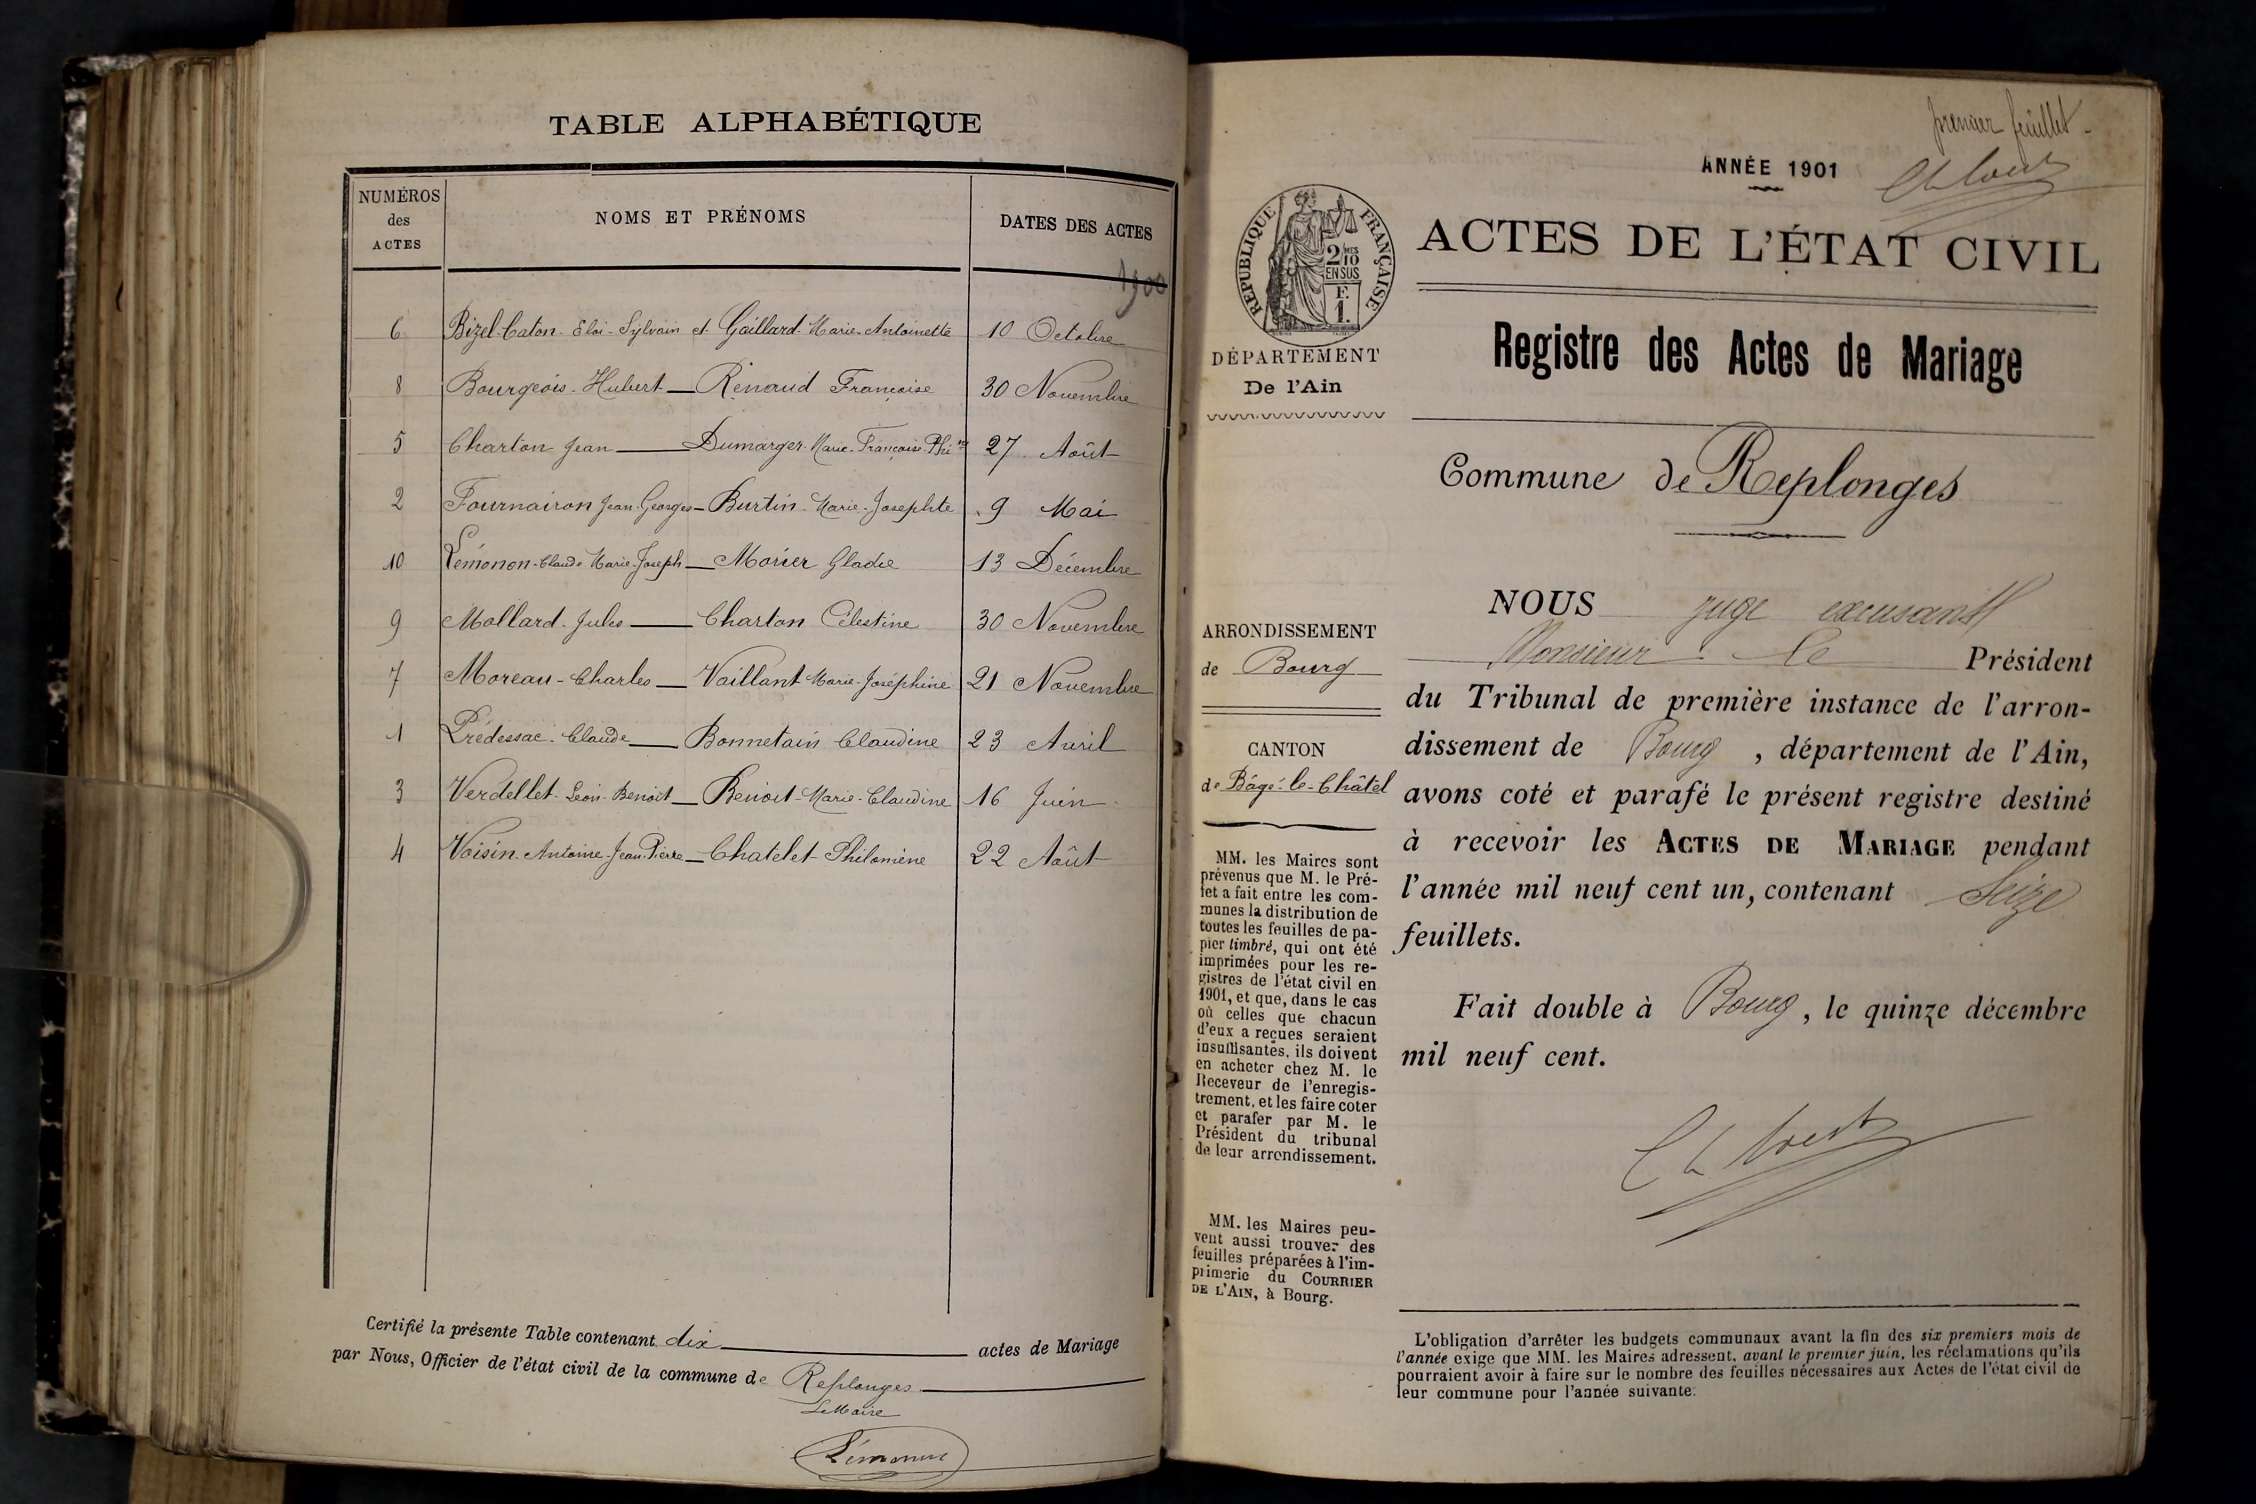 TABLE ALPHABÉTIQUE
NUMÉROS des ACTES
NOMS ET PRÉNOMS
DATES DES ACTES
1900
6 Bizel-Caton-Eloi-Sylvain et Gaillard-Marie-Antoinette 10 Octobre
8 Bourgeois-Hubert — Renaud Françoise 30 Novembre
5 Charton Jean — Dumarger-Marie-Françoise-Phi ne 27 Août
2 Fournairon Jean Georges — Burtin-Marie-Josephte 9 Mai
10 Lémonon-Claude Marie-Joseph — Morier Gladie 13 Décembre
9 Mollard-Jules — Charton Célestine 30 Novembre
7 Moreau-Charles — Vaillant Marie-Joséphine 21 Novembre
1 Prédessac-Claude — Bonnetain Claudine 23 Avril
3 Verdellet-Léon-Benoît — Benoit-Marie-Claudine 16 Juin
4 Voisin Antoine-Jean-Pierre — Chatelet Philomène 22 Août
Certifié la présente Table contenant dix actes de Mariage
par Nous, Officier de l'état civil de la commune de Replonges
Le Maire
Lémonon
premier feuillet
ANNÉE 1901
ACTES DE L'ÉTAT CIVIL
RÉPUBLIQUE FRANÇAISE
2 MES
10
EN SUS
F.
1.
DÉPARTEMENT
De l'Ain
Registre des Actes de Mariage
Commune de Replonges
ARRONDISSEMENT
de Bourg
CANTON
de Bâgé-le-Châtel
MM. les Maires sont
prévenus que M. le Pré-
fet a fait entre les com-
munes la distribution de
toutes les feuilles de pa-
pier timbré, qui ont été
imprimées pour les re-
gistres de l'état civil en
1901, et que, dans le cas
où celles que chacun
d'eux a reçues seraient
insuffisantes, ils doivent
en acheter chez M. le
Receveur de l'enregis-
trement, et les faire coter
et parafer par M. le
Président du tribunal
de leur arrondissement.
MM. les Maires peu-
vent aussi trouver des
feuilles préparées à l'im-
primerie du COURRIER
DE L'AIN, à Bourg.
NOUS juge excusant
Monsieur le Président
du Tribunal de première instance de l'arron-
dissement de Bourg, département de l'Ain,
avons coté et parafé le présent registre destiné
à recevoir les ACTES DE MARIAGE pendant
l'année mil neuf cent un, contenant Seize
feuillets.
Fait double à Bourg, le quinze décembre
mil neuf cent.
L'obligation d'arrêter les budgets communaux avant la fin des six premiers mois de
l'année exige que MM. les Maires adressent, avant le premier juin, les réclamations qu'ils
pourraient avoir à faire sur le nombre des feuilles nécessaires aux Actes de l'état civil de
leur commune pour l'année suivante.